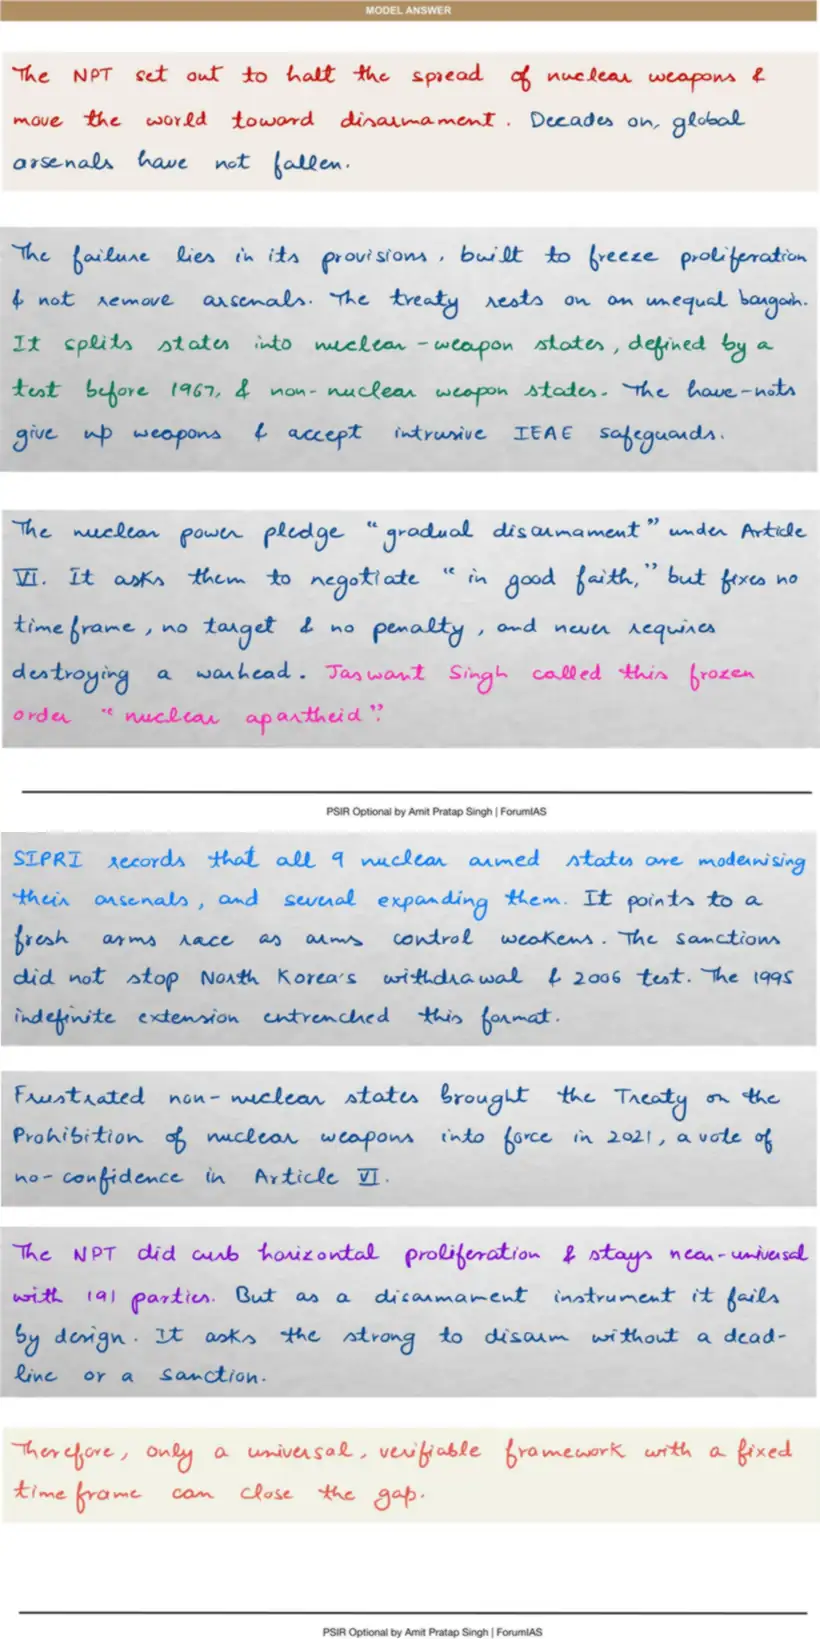 MODEL ANSWER
The NPT set out to halt the spread of nuclear weapons &
move the world toward disarmament. Decades on, global
arsenals have not fallen.
The failure lies in its provisions, built to freeze proliferation
& not remove arsenals. The treaty rests on an unequal bargain.
It splits states into nuclear-weapon states, defined by a
test before 1967, & non-nuclear weapon states. The have-nots
give up weapons & accept intrusive IEAE safeguards.
The nuclear power pledge "gradual disarmament" under Article
VI. It asks them to negotiate "in good faith," but fixes no
timeframe, no target & no penalty, and never requires
destroying a warhead. Jaswant Singh called this frozen
order "nuclear apartheid".
PSIR Optional by Amit Pratap Singh | ForumIAS
SIPRI records that all 9 nuclear armed states are modernising
their arsenals, and several expanding them. It points to a
fresh arms race as arms control weakens. The sanctions
did not stop North Korea's withdrawal & 2006 test. The 1995
indefinite extension entrenched this format.
Frustrated non-nuclear states brought the Treaty on the
Prohibition of nuclear weapons into force in 2021, a vote of
no-confidence in Article VI.
The NPT did curb horizontal proliferation & stays near-universal
with 191 parties. But as a disarmament instrument it fails
by design. It asks the strong to disarm without a dead-
line or a sanction.
Therefore, only a universal, verifiable framework with a fixed
timeframe can close the gap.
PSIR Optional by Amit Pratap Singh | ForumIAS